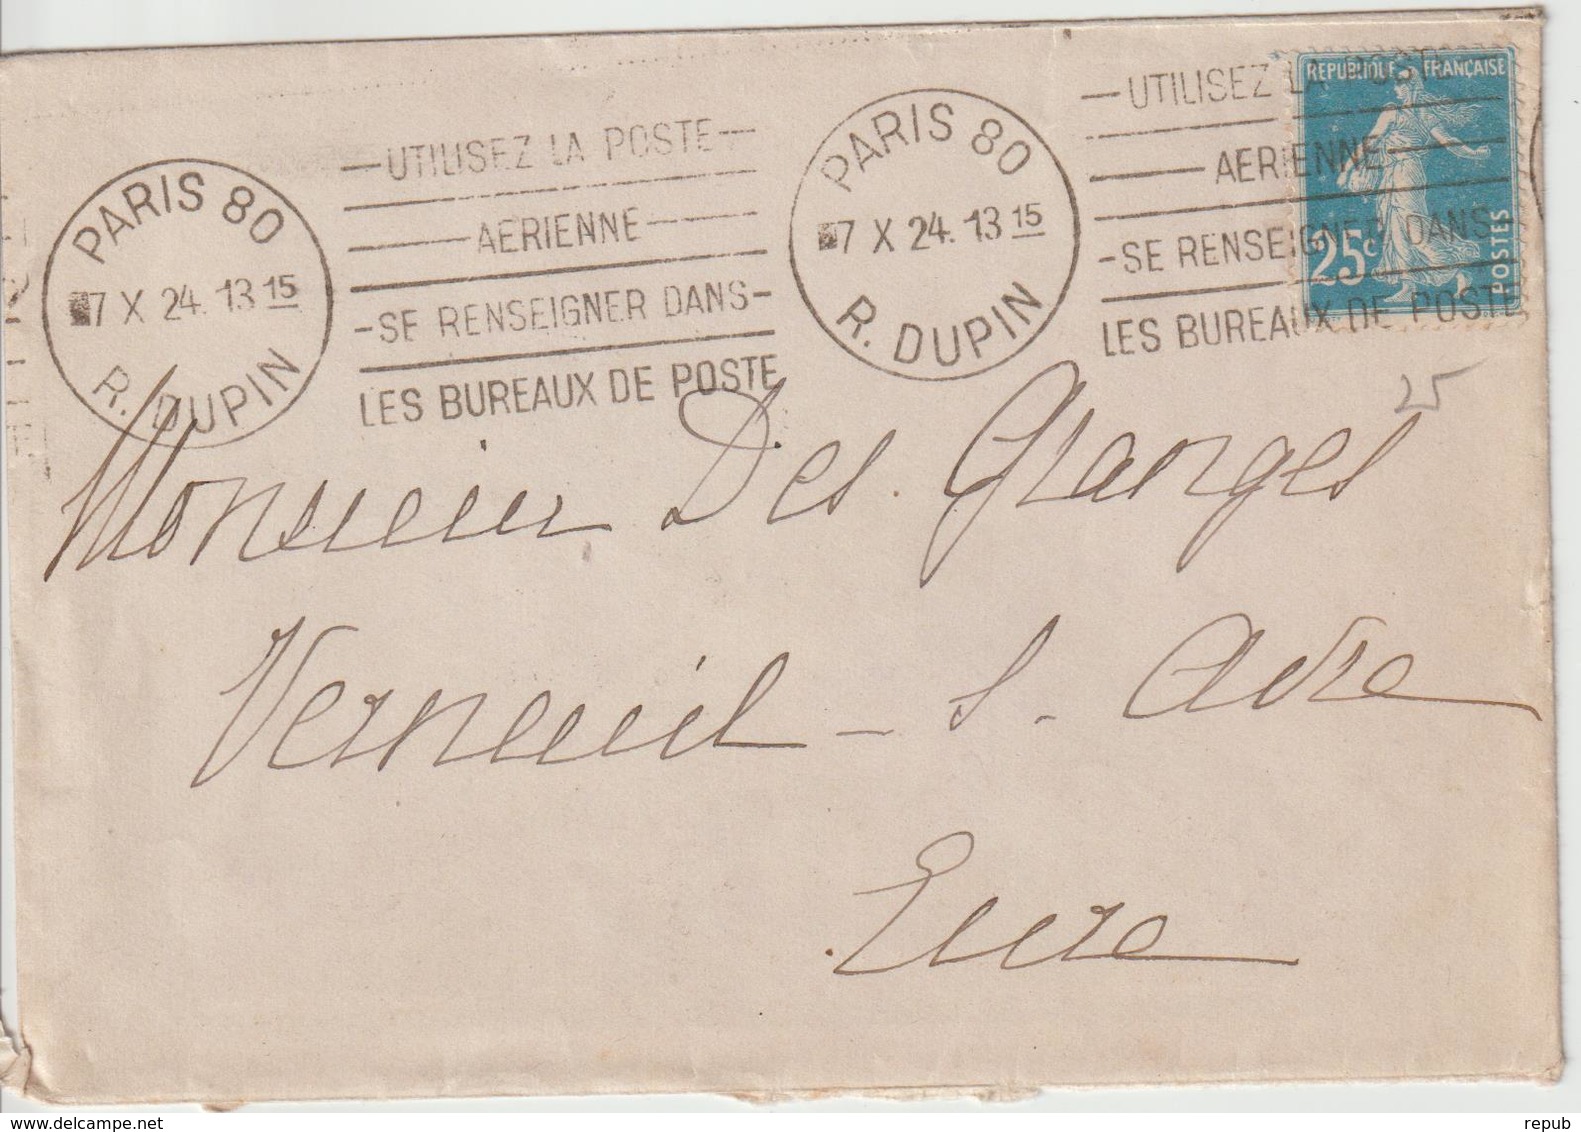 PARIS 80
7 X 24. 13 15
R. DUPIN
—UTILISEZ LA POSTE—
AERIENNE
-SE RENSEIGNER DANS-
LES BUREAUX DE POSTE
PARIS 80
7 X 24. 13 15
R. DUPIN
—UTILISEZ LA POSTE—
AERIENNE
-SE RENSEIGNER DANS-
LES BUREAUX DE POSTE
REPUBLIQUE FRANÇAISE
25c
POSTES
25
Monsieur Des Granges
Verneuil - s. Avre
Eure
www.delcampe.net
repub